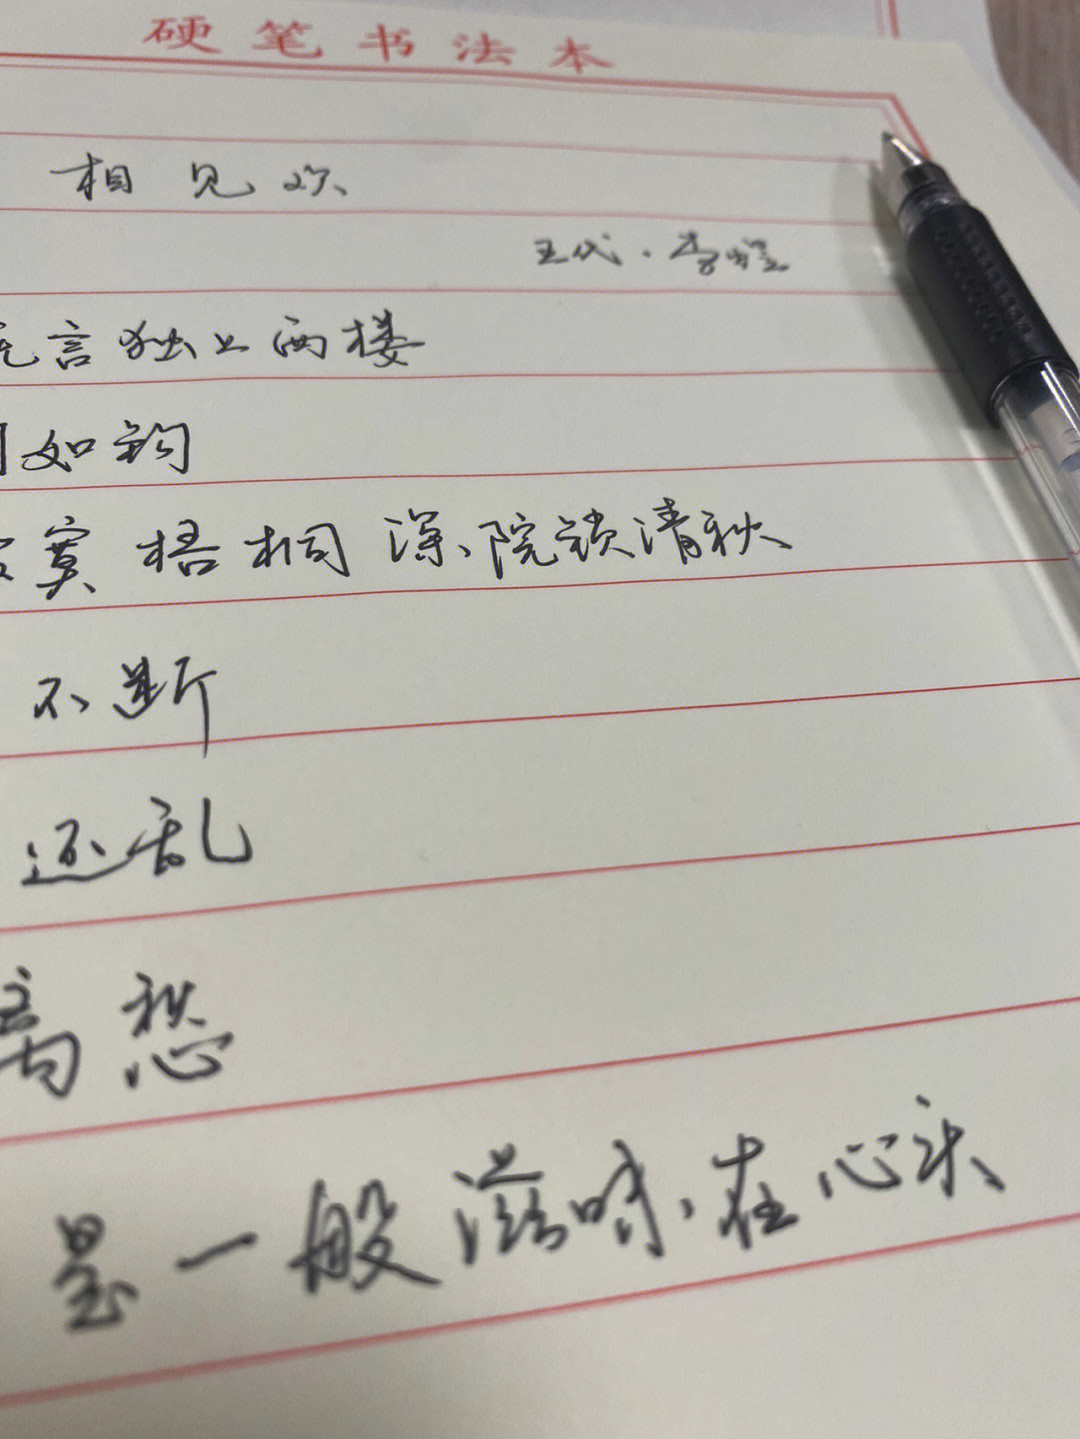 硬笔书法本
相见欢
五代·李煜
无言独上西楼
如钩
寞梧桐深院锁清秋
不断
还乱
离愁
是一般滋味在心头